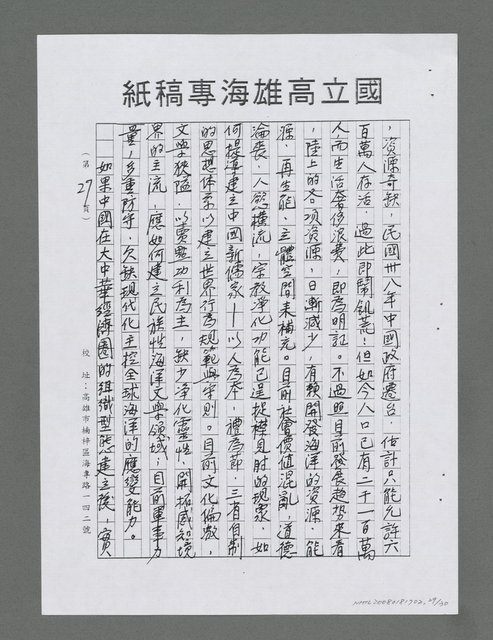 國立高雄海專稿紙
，資源奇缺，民國卅八年中國政府遷台，估計只能允許六
百萬人存活，過此即鬧飢荒；但如今人口已有二千一百萬
人而生活奢侈浪費，即為明証。不過照目前發展趨勢來看
，陸上的各項資源，日漸減少，有賴開發海洋的資源、能
源、再生能、立體空間來補充。目前社會價值混亂，道德
淪喪，人慾橫流，宗教淨化功能已呈捉襟見肘的現象，如
何提準建立中國新儒家——以人為本，禮為節，三有自制
的思想体系以建立世界行為規範與準則。目前文化偏激，
文學狹隘，以賣弄功利為主，缺少淨化靈性、開拓感知境
界的主流，應如何建立民族性海洋文學領域；目前軍事力
量，多重防守，欠缺現代化主控全球海洋的應變能力。
如果中國在大中華經濟圈的組織型態建立後，實
（第27頁）
校址：高雄市楠梓區海專路一四二號
NMTL20080181702, 29/30